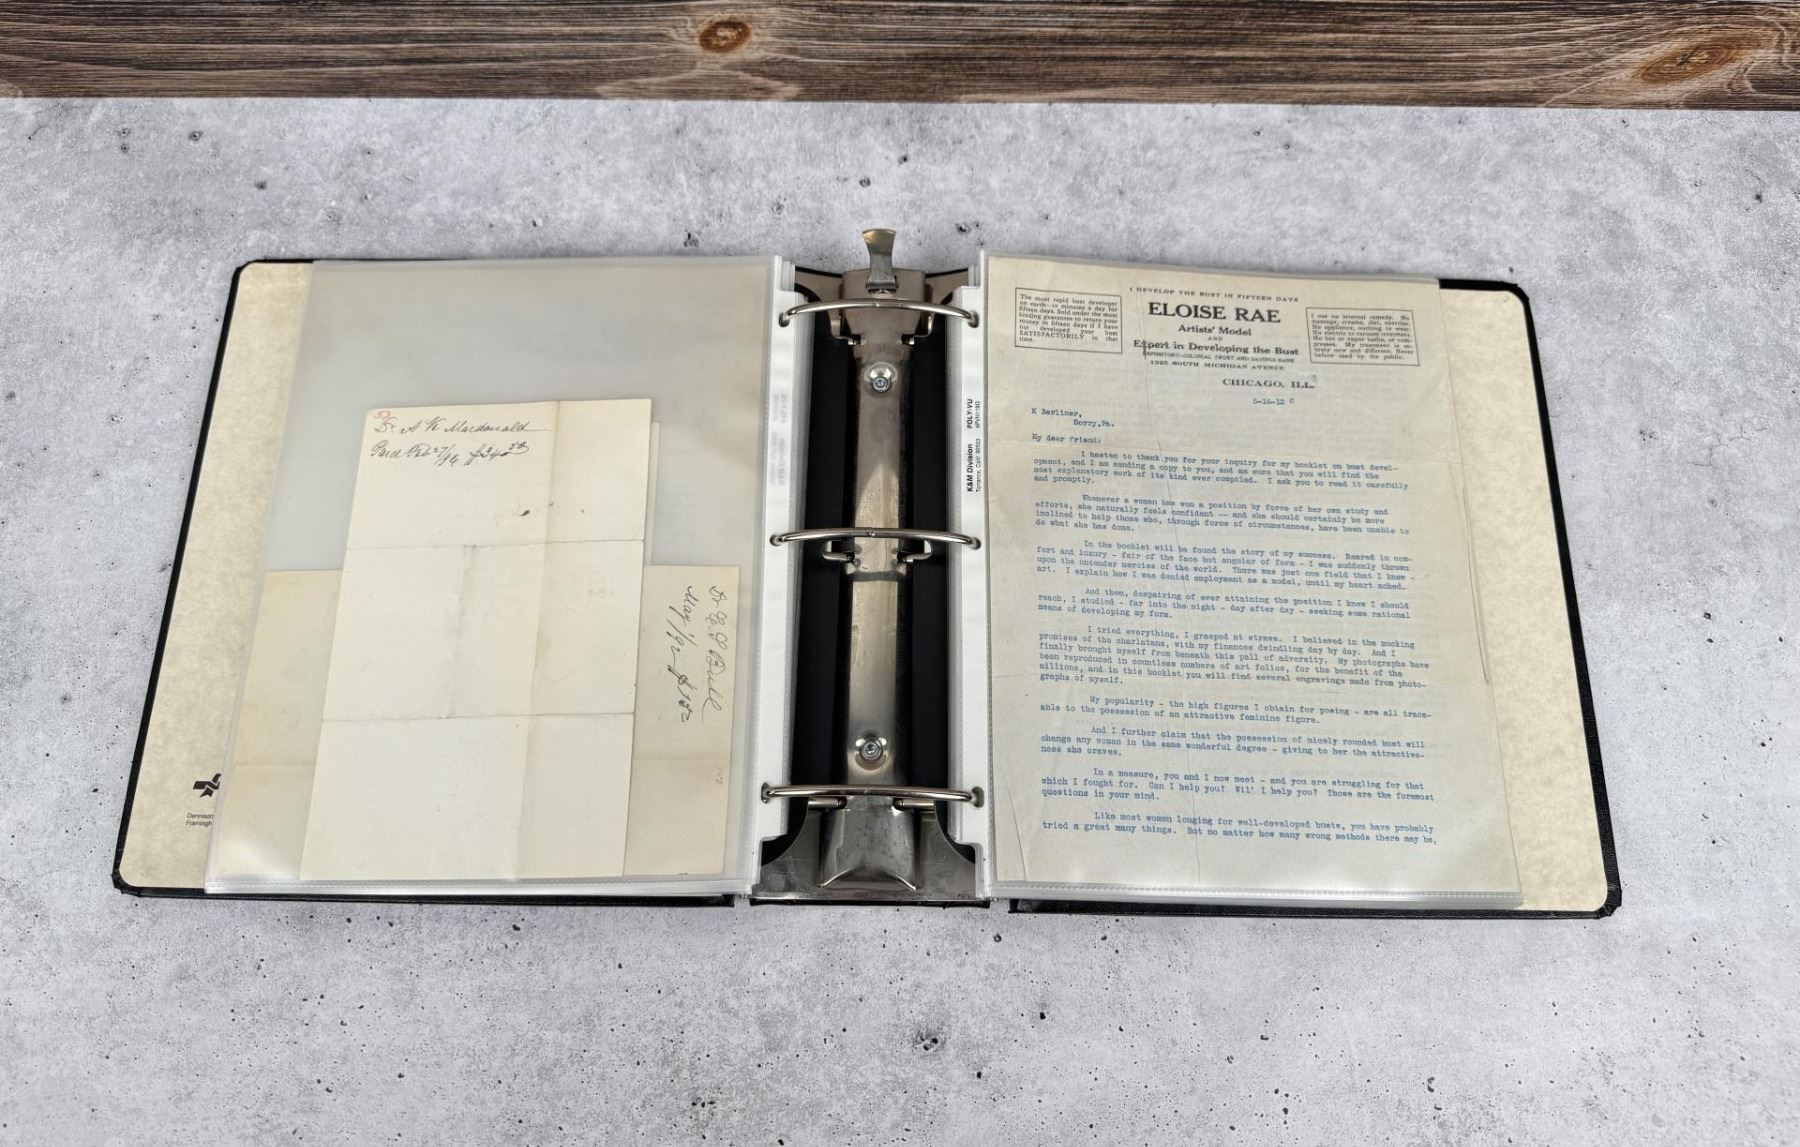 Dr. A K Macdonald
Paid Feb 27/96 $34.50
Dr
May 1/92 $1
Dennison
Framingh
K&M Division
Torrance, Calif. 90503
POLY-VU
I DEVELOP THE BUST IN FIFTEEN DAYS
The most rapid bust developer
on earth—10 minutes a day for
fifteen days. Sold under the most
binding guarantee to return your
money in fifteen days if I have
not developed your bust
SATISFACTORILY in that
time.
ELOISE RAE
Artists' Model
AND
Expert in Developing the Bust
DEPOSITORY—COLONIAL TRUST AND SAVINGS BANK
1925 SOUTH MICHIGAN AVENUE
CHICAGO, ILL.
I use no internal remedy. No
massage, creams, diet, exercise.
No appliance, nothing to wear.
No electric or vacuum treatment.
No hot or vapor baths, or com-
presses. My treatment is en-
tirely new and different. Never
before used by the public.
5-16-12 C
K Berliner,
Corry,Pa.
My dear friend:
I hasten to thank you for your inquiry for my booklet on bust devel-
opment, and I am sending a copy to you, and am sure that you will find the
most explanatory work of its kind ever compiled. I ask you to read it carefully
and promptly.
Whenever a woman has won a position by force of her own study and
efforts, she naturally feels confident -- and she should certainly be more
inclined to help those who, through force of circumstances, have been unable to
do what she has done.
In the booklet will be found the story of my success. Reared in com-
fort and luxury - fair of the face but angular of form - I was suddenly thrown
upon the untender mercies of the world. There was just one field that I knew -
art. I explain how I was denied employment as a model, until my heart ached.
And then, despairing of ever attaining the position I knew I should
reach, I studied - far into the night - day after day - seeking some rational
means of developing my form.
I tried everything, I grasped at straws. I believed in the mocking
promises of the charlatans, with my finances dwindling day by day. And I
finally brought myself from beneath this pall of adversity. My photographs have
been reproduced in countless numbers of art folios, for the benefit of the
millions, and in this booklet you will find several engravings made from photo-
graphs of myself.
My popularity - the high figures I obtain for posing - are all trace-
able to the possession of an attractive feminine figure.
And I further claim that the possession of nicely rounded bust will
change any woman in the same wonderful degree - giving to her the attractive-
ness she craves.
In a measure, you and I now meet - and you are struggling for that
which I fought for. Can I help you? Will I help you? Those are the foremost
questions in your mind.
Like most women longing for well-developed busts, you have probably
tried a great many things. But no matter how many wrong methods there may be,